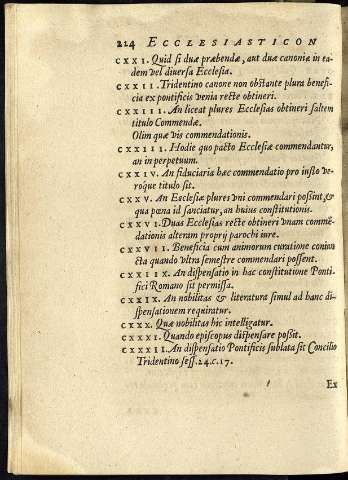 224 ECCLESIASTICON
CXXI. Quid si duæ præbendæ, aut duæ canoniæ in ea-
dem vel diversa Ecclesia.
CXXII. Tridentino canone non obstante plura benefi-
cia ex pontificis venia recte obtineri.
CXXIII. An liceat plures Ecclesias obtineri saltem
titulo Commendæ.
Olim quæ vis commendationis.
CXXIIII. Hodie quo pacto Ecclesiæ commendantur,
an in perpetuum.
CXXIV. An fiduciaria hæc commendatio pro iusto ve-
roque titulo sit.
CXXV. An Ecclesiæ plures vni commendari possint, &
qua pœna id sanciatur, an huius constitutionis.
CXXVI. Duas Ecclesias recte obtineri vnam commē-
dationis alteram proprij parochi iure.
CXXVII. Beneficia cum animorum curatione coniun
cta quando vltra semestre commendari possent.
CXXIIX. An dispensatio in hac constitutione Ponti-
fici Romano sit permissa.
CXXIX. An nobilitas & literatura simul ad hanc di-
spensationem requiratur.
CXXX. Quæ nobilitas hic intelligatur.
CXXXI. Quando episcopus dispensare possit.
CXXXII. An dispensatio Pontificis sublata sit Concilio
Tridentino sess. 24. c. 17.
Ex